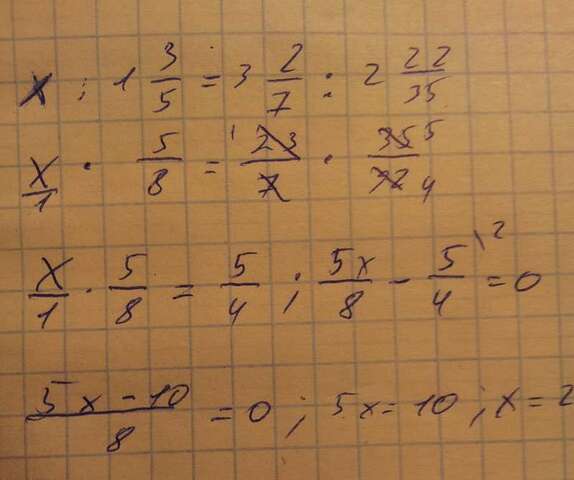 x : 1 3/5 = 3 2/7 : 2 22/35
x/1 · 5/8 = 1 23/7 · 35 5/92 4
x/1 · 5/8 = 5/4 ; 5x/8 - 5/4 \2 = 0
5x-10/8 = 0 ; 5x = 10 ; x = 2